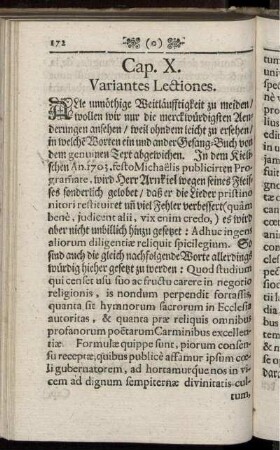 172 (o)
Cap. X.
Variantes Lectiones.
Alle unnöthige Weitläufftigkeit zu meiden/
wollen wir nur die merckwürdigsten Aen-
derungen ansehen/ weil ohndem leicht zu ersehen/
in welche Worten ein und ander Gesang-Buch von
dem genuinen Text abgewichen. In dem Kiel-
schen An. 1703. festo Michaëlis publicirten Pro-
grammate, wird Herr Arnkiel wegen seines Fleis-
ses sonderlich gelobet/ daß er die Lieder pristini
nitori restituiret uñ viel Fehler verbessert (quàm
benè, judicent alii, vix enim credo,) es wird
aber nicht unbillich hinzu gesetzt: Adhuc ingens
aliorum diligentiæ reliquit spicilegium. So
sind auch die gleich nachfolgende Worte allerdings
würdig hieher gesetzt zu werden: Quod studium
qui censet usu suo ac fructu carere in negotio
religionis, is nondum perpendit fortassis,
quanta sit hymnorum sacrorum in Ecclesia
autoritas, & quanta præ reliquis omnibus
profanorum poëtarum Carminibus excellen-
tiæ. Formulæ quippe sunt, piorum consen-
su receptæ, quibus publicè affamur ipsum cœ-
li gubernatorem, ad hortamurque nos in vi-
cem ad dignum sempiternæ divinitatis cul-
tum,